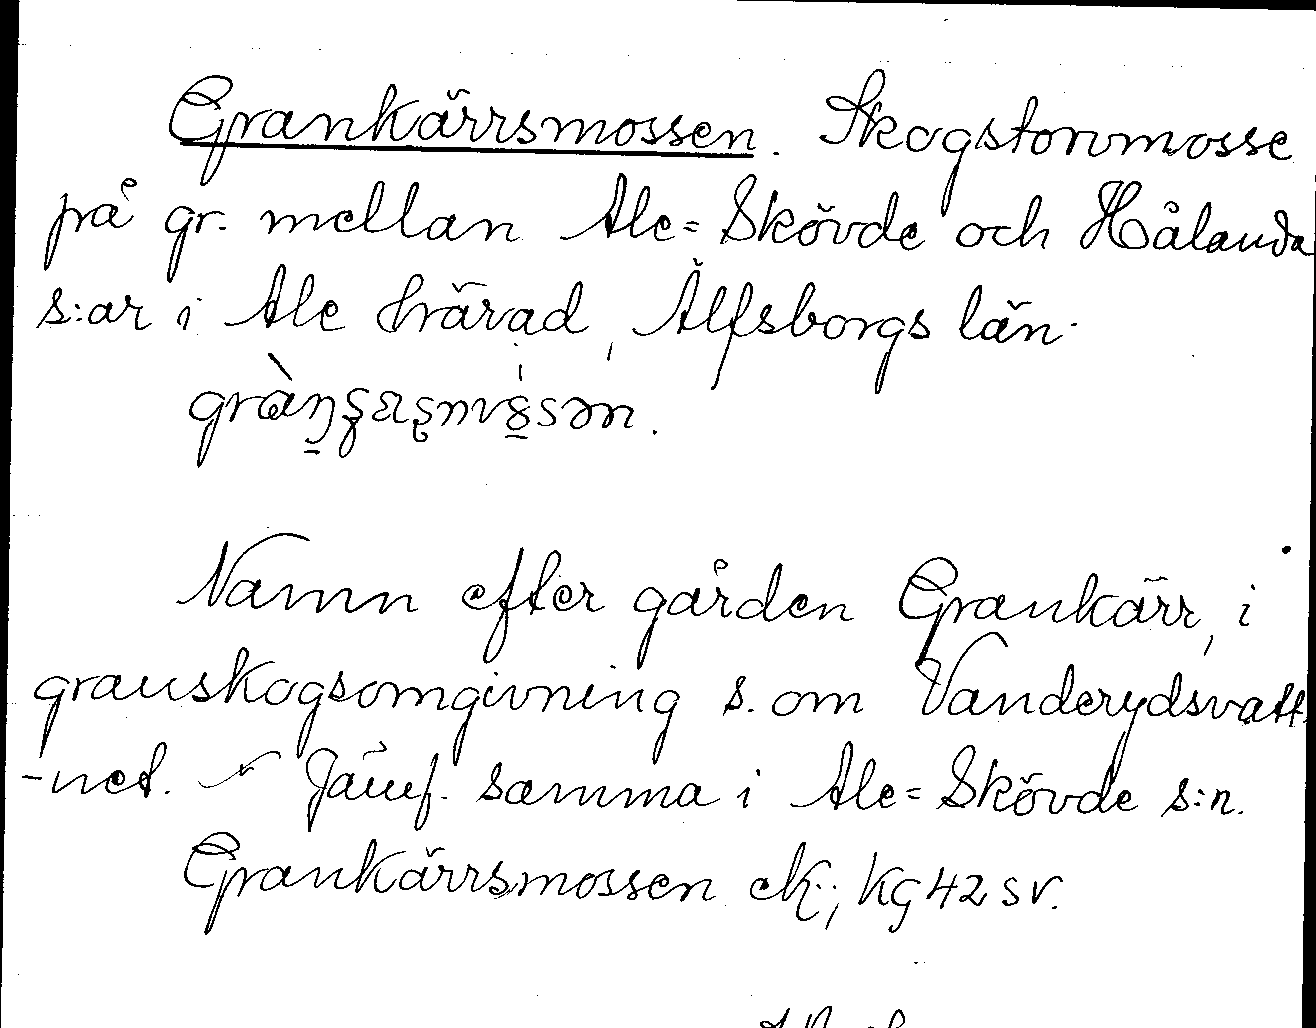 Grankärrsmossen. Skogstorvmosse
på gr. mellan Ale=Skövde och Hålanda
s:ar i Ale härad, Älfsborgs län.
Namn efter gården Grankärr, i
granskogsomgivning s. om Vanderydsvatt-
-net. Jämf. samma i Ale=Skövde s:n.
Grankärrsmossen ek.; Kg 42 sv.